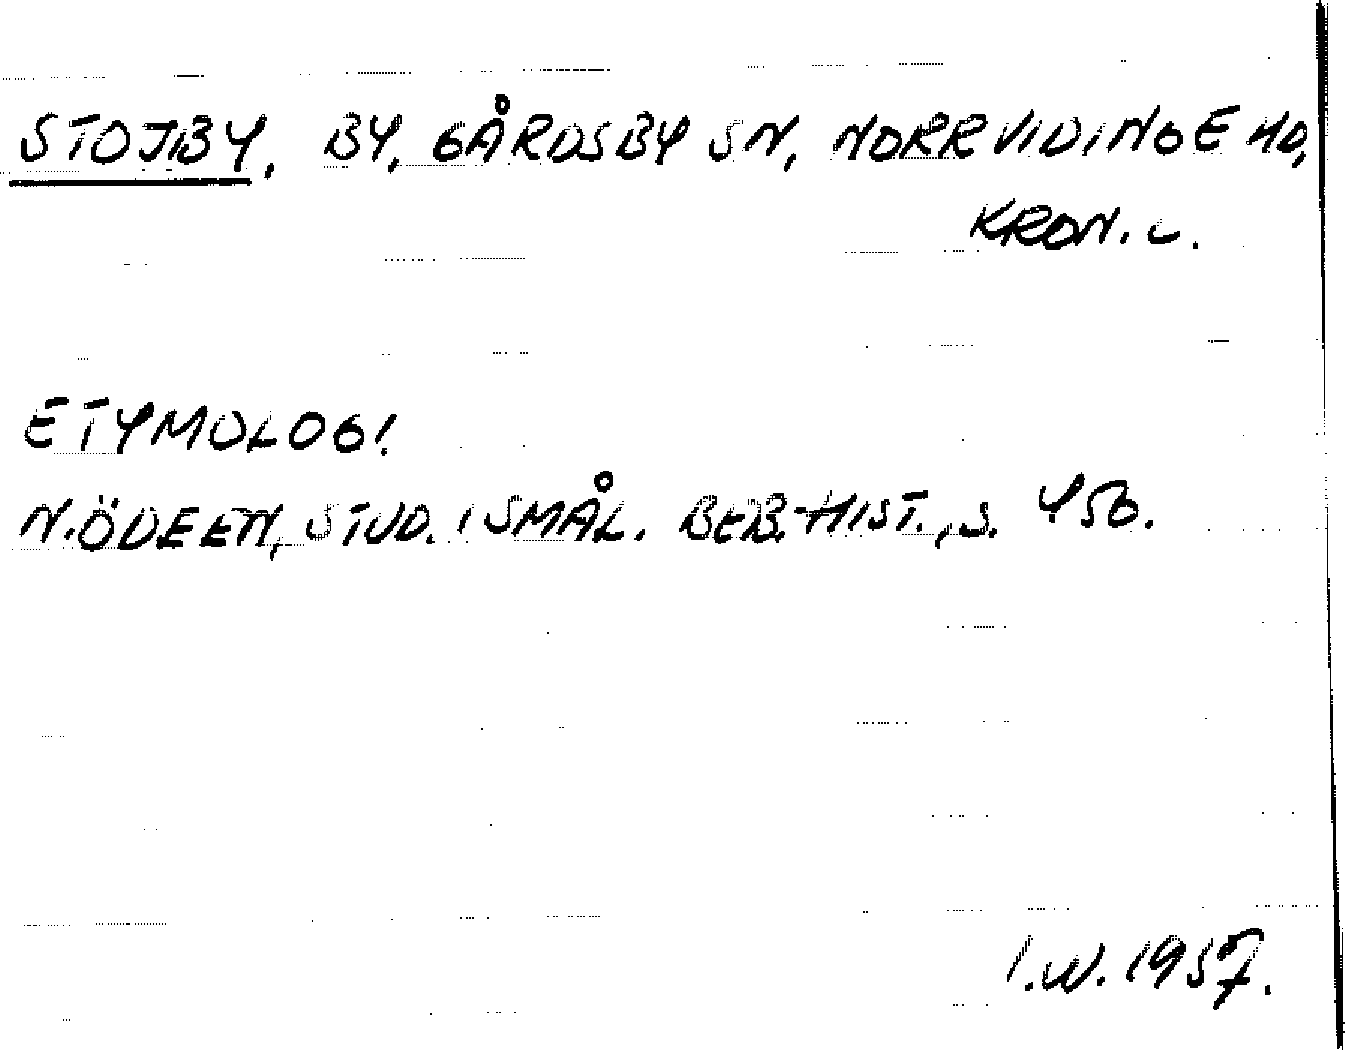 STOJBY, BY, GÅRDSBY SN, NORRVIDINGE HD,
KRON. L.
ETYMOLOGI.
N. ÖDEEN, STUD. I SMÅL. BEB. HIST., S. 450.
I.W. 1957.